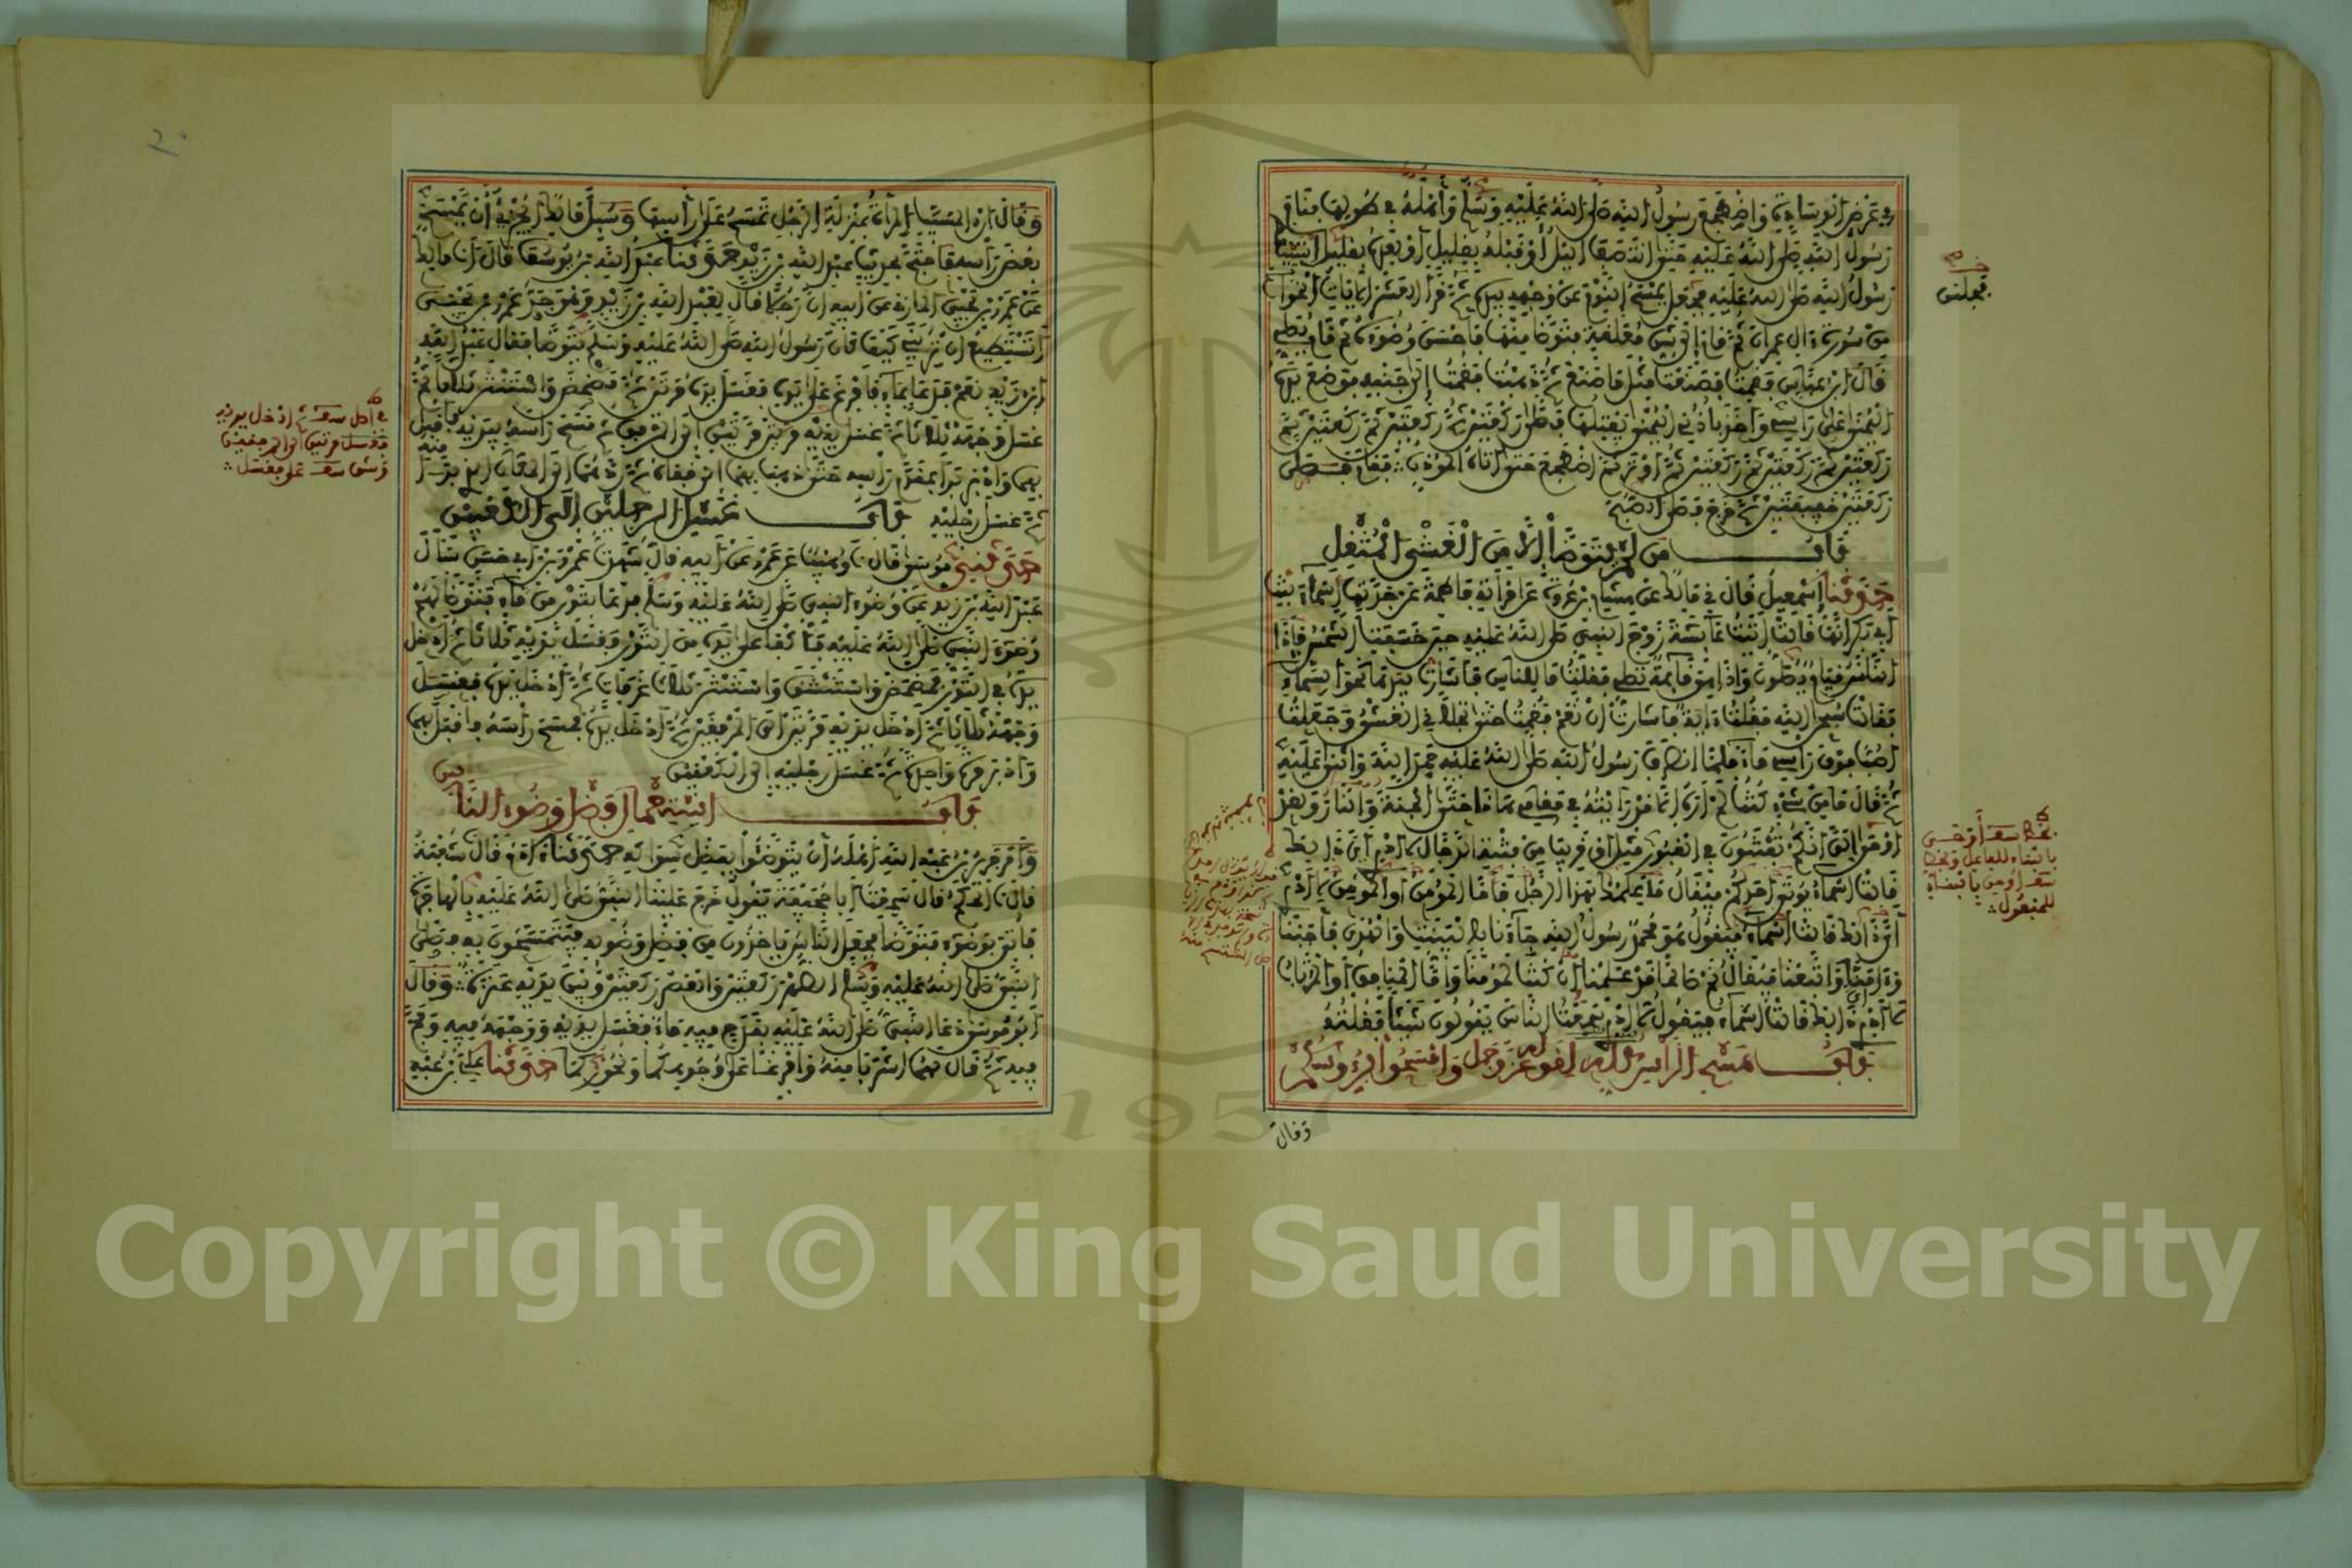 في عرض الوسادة واضطجع رسول الله صلى الله عليه وسلم وأهله في طولها فنام
رسول الله صلى الله عليه حتى انتصف الليل أو قبله بقليل أو بعده بقليل استيقظ
رسول الله صلى الله عليه فجعل يمسح النوم عن وجهه بيده ثم قرأ العشر الآيات الخواتم
من سورة آل عمران ثم قام إلى شن معلقة فتوضأ منها فأحسن وضوءه ثم قام يصلي
قال ابن عباس فقمت فصنعت مثل ما صنع ثم ذهبت فقمت إلى جنبه فوضع يده
اليمنى على رأسي وأخذ بأذني اليمنى يفتلها فصلى ركعتين ثم ركعتين ثم ركعتين ثم
ركعتين ثم ركعتين ثم ركعتين ثم أوتر ثم اضطجع حتى أتاه المؤذن فقام فصلى
ركعتين خفيفتين ثم خرج فصلى الصبح
باب من لم يتوضأ إلا من الغشي المثقل
حدثنا إسمعيل قال في مالك عن هشام بن عروة عن امرأته فاطمة عن جدتها أسماء بنت
أبي بكر أنها قالت أتيت عائشة زوج النبي صلى الله عليه حين خسفت الشمس فإذا
الناس قيام يصلون وإذا هي قائمة تصلي فقلت ما للناس فأشارت بيدها نحو السماء
فقالت سبحن الله فقلت آية فأشارت أن نعم فقمت حتى تجلاني الغشي وجعلت
أصب فوق رأسي ماء فلما انصرف رسول الله صلى الله عليه حمد الله وأثنى عليه
ثم قال ما من شيء كنت لم أره إلا قد رأيته في مقامي هذا حتى الجنة والنار ولقد
أوحي إلي أنكم تفتنون في القبور مثل أو قريبا من فتنة الدجال لا أدري أي ذلك
قالت أسماء يؤتى أحدكم فيقال ما علمك بهذا الرجل فأما المؤمن أو الموقن لا أدري
أي ذلك قالت أسماء فيقول هو محمد رسول الله جاءنا بالبينات والهدى فأجبنا
وءامنا واتبعنا فيقال نم صالحا قد علمنا إن كنت لمؤمنا وأما المنافق أو المرتاب
لا أدري أي ذلك قالت أسماء فيقول لا أدري سمعت الناس يقولون شيئا فقلته
باب مسح الرأس كله لقوله عز وجل وامسحوا برءوسكم
وقال
فجلس
وقال ابن المسيب المرأة بمنزلة الرجل تمسح على رأسها وسئل مالك أيجزئ أن يمسح
بعض رأسه فاحتج بحديث عبد الله بن زيد حدثنا عبد الله بن يوسف قال أنا مالك
عن عمرو بن يحيى المازني عن أبيه أن رجلا قال لعبد الله بن زيد وهو جد عمرو بن يحيى
أتستطيع أن تريني كيف كان رسول الله صلى الله عليه وسلم يتوضأ فقال عبد الله
ابن زيد نعم فدعا بماء فأفرغ على يديه فغسل يده مرتين ثم مضمض واستنثر ثلاثا ثم
غسل وجهه ثلاثا ثم غسل يديه مرتين مرتين إلى المرفقين ثم مسح رأسه بيديه فأقبل
بهما وأدبر بدأ بمقدم رأسه حتى ذهب بهما إلى قفاه ثم ردهما إلى المكان الذي بدأ منه
ثم غسل رجليه باب غسل الرجلين إلى الكعبين
حدثني موسى قال نا وهيب عن عمرو عن أبيه قال شهدت عمرو بن أبي حسن سأل
عبد الله بن زيد عن وضوء النبي صلى الله عليه وسلم فدعا بتور من ماء فتوضأ لهم
وضوء النبي صلى الله عليه فأكفأ على يده من التور فغسل يديه ثلاثا ثم أدخل
يده في التور فمضمض واستنشق واستنثر ثلاث غرفات ثم أدخل يده فغسل
وجهه ثلاثا ثم أدخل يديه مرتين إلى المرفقين ثم أدخل يده فمسح رأسه فأقبل بهما
وأدبر مرة واحدة ثم غسل رجليه إلى الكعبين
باب استعمال فضل وضوء الناس
وأمر جرير بن عبد الله أهله أن يتوضئوا بفضل سواكه حدثنا ءادم قال نا شعبة
قال نا الحكم قال سمعت أبا جحيفة يقول خرج علينا النبي صلى الله عليه بالهاجرة
فأتي بوضوء فتوضأ فجعل الناس يأخذون من فضل وضوئه فيتمسحون به فصلى
النبي صلى الله عليه وسلم الظهر ركعتين والعصر ركعتين وبين يديه عنزة وقال
أبو موسى دعا النبي صلى الله عليه بقدح فيه ماء فغسل يديه ووجهه فيه ومج
فيه ثم قال لهما اشربا منه وأفرغا على وجوهكما ونحوركما حدثنا علي بن عبد
Copyright © King Saud University
1957